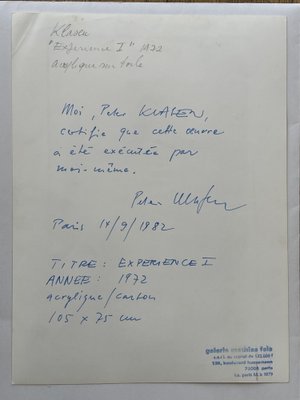 Klasen
"Experience I" 1972
acrylique sur toile
Moi, Peter KLASEN,
certifie que cette œuvre
a été exécutée par
moi-même.
Peter Klasen
Paris 14/9/1982
TITRE: EXPERIENCE I
ANNEE: 1972
acrylique/carton
105 x 75 cm
galerie mathias fels
138, boulevard haussmann
75008 paris